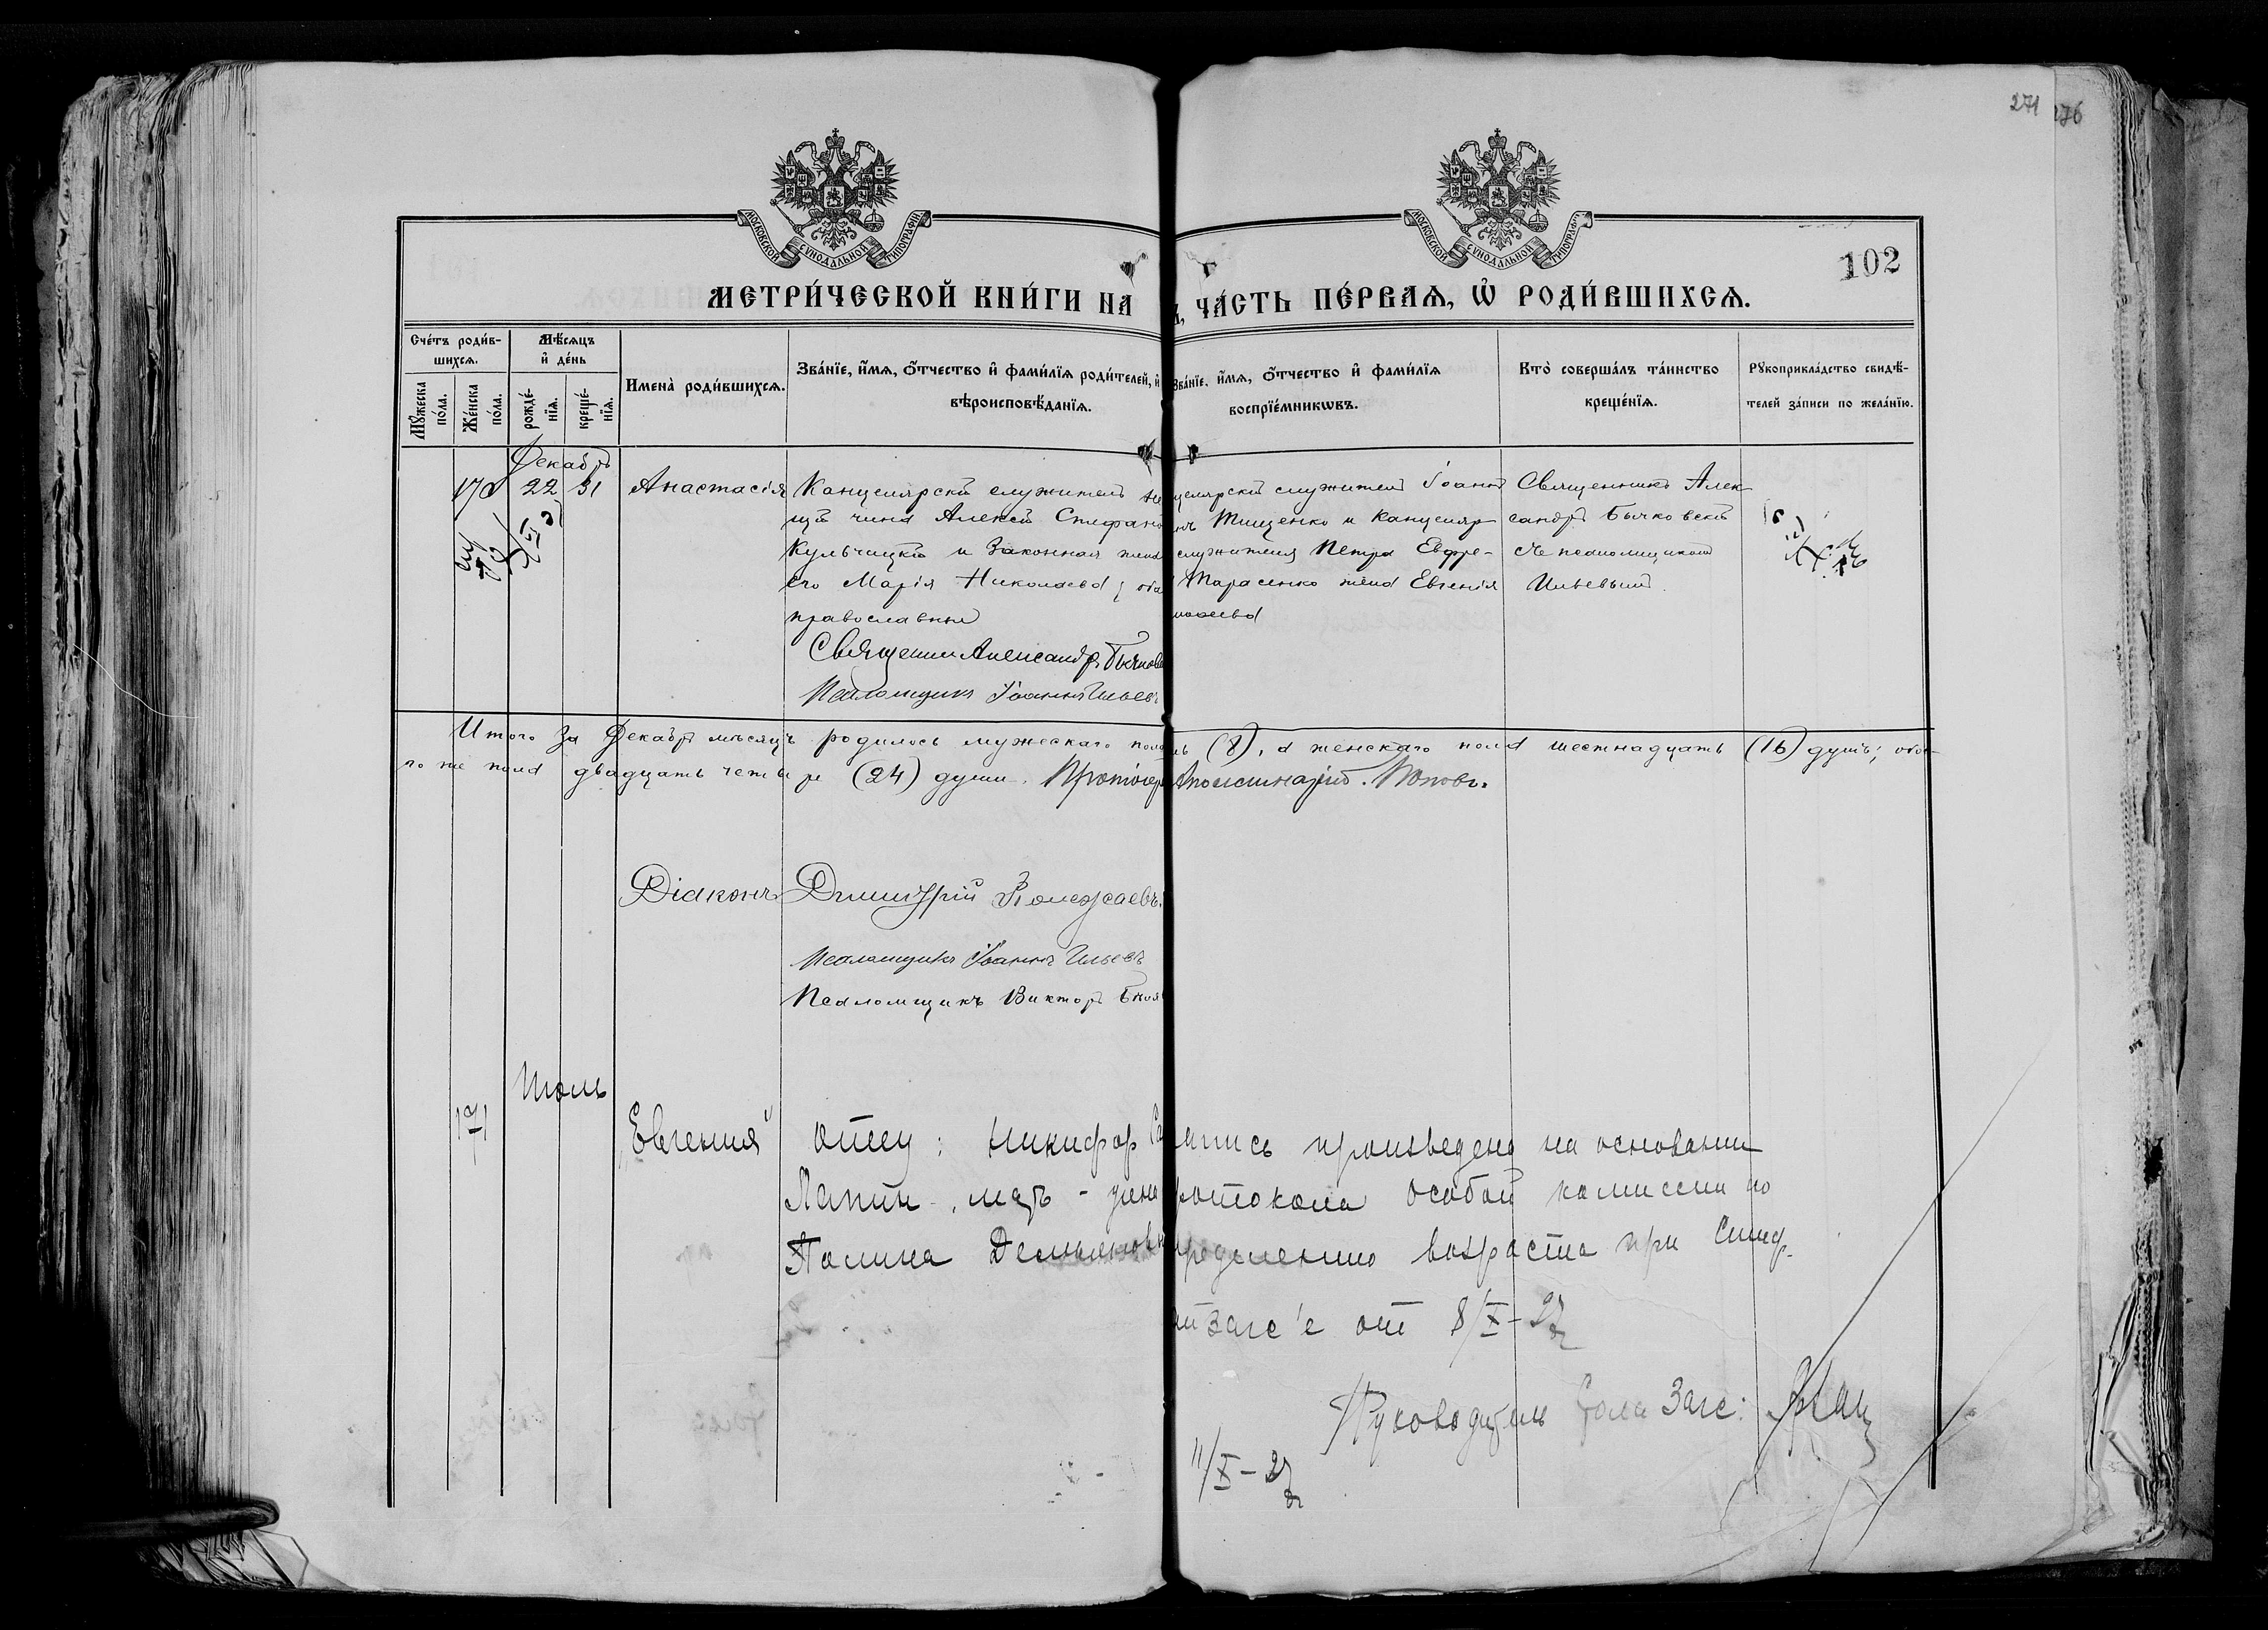 271 276
МОСКОВСКОЙ СѴНОДАЛЬНОЙ ТИПОГРАФІИ
МОСКОВСКОЙ СѴНОДАЛЬНОЙ ТИПОГРАФІИ
102
МЕТРИ́ЧЕСКОЙ КНИ́ГИ НА
ЧА́СТЬ ПЕ́РВАѦ, Ѽ РОДИ́ВШИХСѦ.
Сче́тъ роди́в-
шихсѧ.
Мꙋ́жеска по́ла.
Же́нска по́ла.
Мѣ́сѧцъ
и҆ де́нь
рожде́-
нїѧ.
креще́-
нїѧ.
Имена̀ роди́вшихсѧ.
Зва́нїе, и҆́мѧ, ѻ҆́тчество и҆ фами́лїѧ роди́телей, и҆
вѣроисповѣ́данїѧ.
Зва́нїе, и҆́мѧ, ѻ҆́тчество и҆ фами́лїѧ
воспрїе́мникѡвъ.
Кто̀ соверша́лъ та́инство
креще́нїѧ.
Рꙋкоприкла́дство свидѣ́-
телей за́писи по жела́нїю.
Декабрь
170 22 31 Анастасія
Канцелярскій служитель не
щій чина Алексѣй Стефано
Кульчицкій и законная жена
его Марія Николаева; оба
православные
Священник Александръ Бычков
Псаломщикъ Іоаннъ Ильевъ
целярскій служитель Іоаннъ
Тищенко и канцеляр
служителя Петра Евфре-
Тарасенко жена Евгенія
Священникъ Алек-
сандръ Бычковскій
съ псаломщикомъ
Ильевымъ
Итого за Декабрь мѣсяцъ родилось мужескаго пола (8), а женскаго пола шестнадцать (16) душъ; обое-
го же пола двадцать четыре (24) души. Протоіер Аполлинарій Поповъ.
Діаконъ Димитрій
Псаломщикъ Іоаннъ Ильевъ
Псаломщикъ Викторъ
Июль
171 „Евгения“
Отец: Никифор
Лапин, мать - жена
Полина Демьяновн
апись произведена на основании
ротокола особой комиссии по
ределению возраста при Симф.
загс'е от 8/X-27
Руководитель Стола Загс:
11/X-27